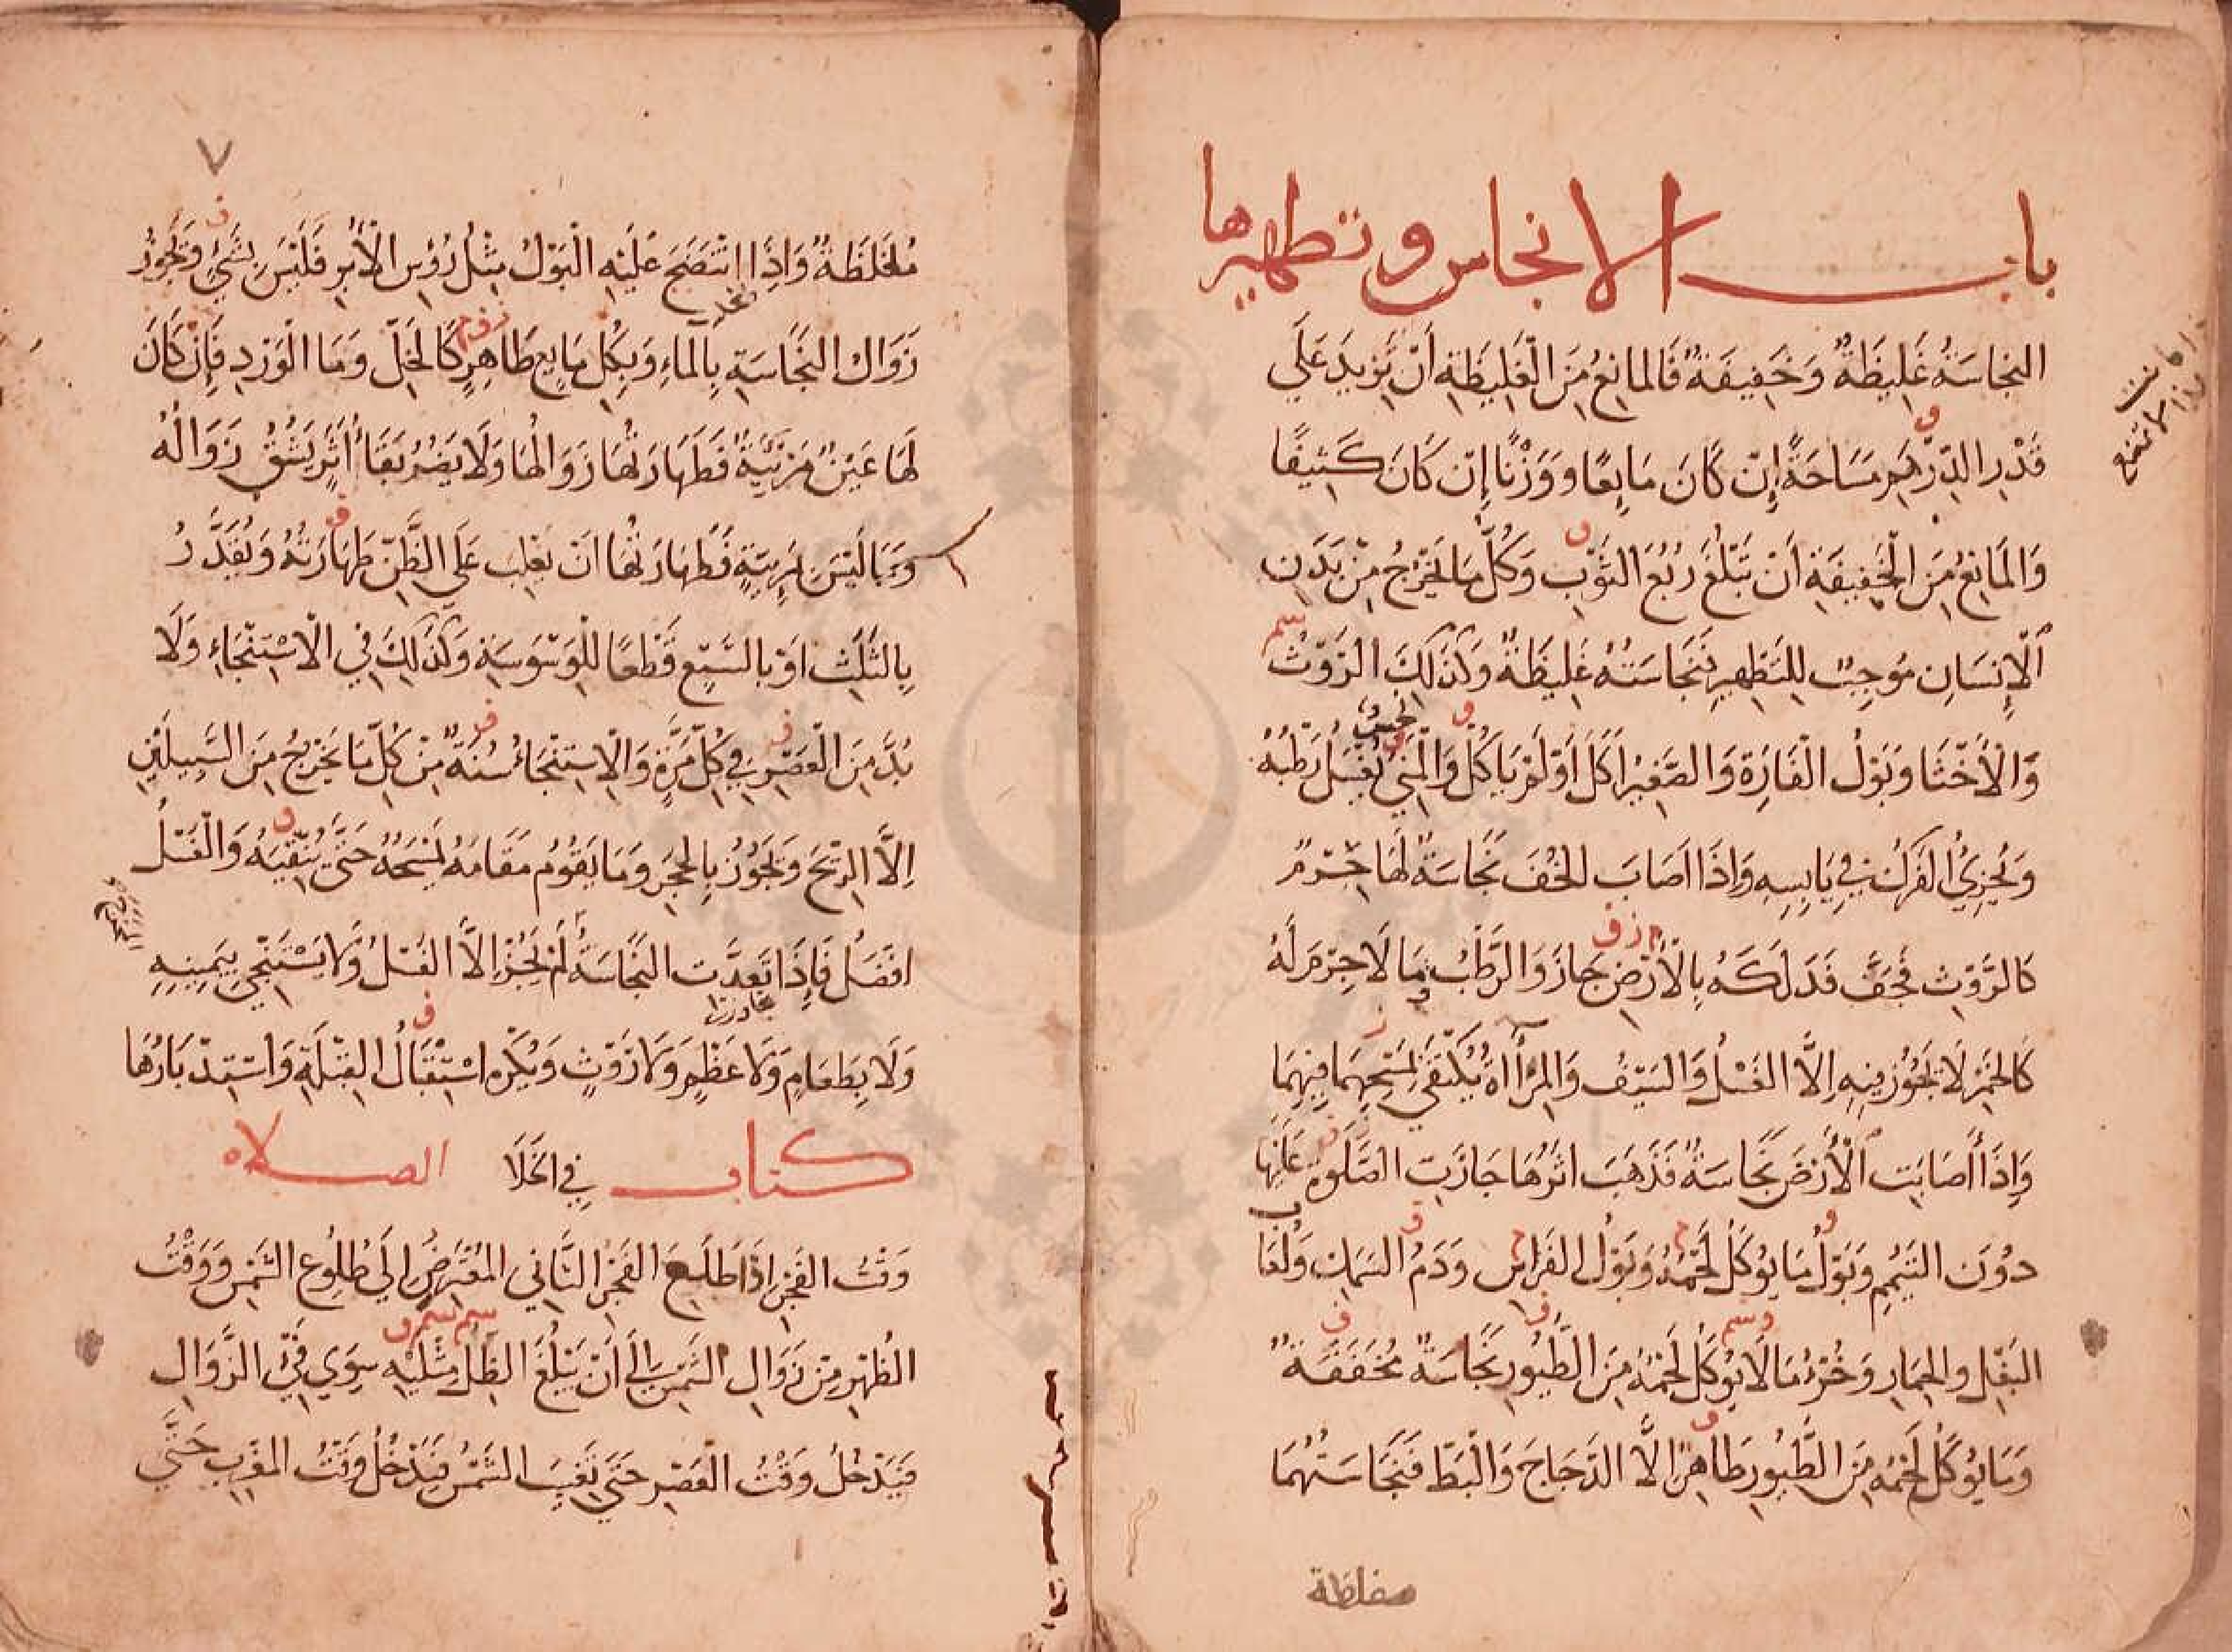 باب الانجاس وتطهيرها
النجاسَةُ غَلِيظَةٌ وَخَفِيفَةٌ فَالمانِعُ مِنَ الْغَلِيظَةِ أَنْ يَزِيدَ عَلَي
قَدْرِ الدِّرْهَمِ مسَاحَةً إِنْ كَانَ مَايِعًا ووَزْنًا إِنْ كَانَ كَثِيفًا
وَالمَانِعُ مِنَ الْخَفِيفَةِ أَنْ تَبْلُغَ رُبُعَ الثَّوْبِ وَكُلُّ مَا يَخْرُجُ مِنْ بَدَنِ
الْإِنسَانِ مُوجِبٌ لِلتَّطْهِيرِ فَنَجَاسَتُهُ غَلِيظَةٌ وَكَذلِكَ الرَّوْثُ
وَالْأَخْثَا وَبَوْلُ الْفَارَةِ وَالصَّغِيرُ أَكَلَ أَوْ لَمْ يَاكُلْ وَالْمَنِيُّ نجس يُغْسَلُ رَطْبُهُ
وَيُجْزِئُ الفَرْكُ فِي يَابِسِهِ وَاذَا اصَابَ الخُفَّ نَجَاسَةٌ لَهَا جِرْمٌ
كَالرَّوْثِ فَجَفَّ فَدَلَكَهُ بِالْأَرْضِ جازَ وَالرَّطْبُ وَمَا لَا جِرْمَ لَهُ
كَالخَمْرِ لَا يَجُوزُ فِيهِ اِلَّا الغَسْلُ وَالسَيْفُ وَالمِرْأَاةُ يُكْتَفَي بِمَسْحِهِمَا فِيهِمَا
وَاِذَا أَصَابَتِ الْأَرْضَ نَجَاسَةٌ فَذَهَبَ اثَرُهَا جَازَتِ الصَّلَوةُ عَلَيْهَا
دُوْنَ التَيَمُّمِ وَبَوْلُ مَا يُوكَلُ لَحْمُهُ وَبَوْلُ الفَرَسِ وَدَمُ السَمَكِ وَلُعَابُ
البَغْلِ والحِمَارِ وَخُرْءُ مَا لَا يُوكَلُ لَحْمُهُ مِنَ الطُّيُورِ نَجَاسَةٌ مُخَفَفَةٌ
وَمَا يُوكَلُ لَحْمُهُ مِنَ الطُّيُورِ طَاهِرٌ اِلَّا الدَّجَاجَ وَالْبَطَّ فَنَجَاسَتُهُمَا
مغلظة
٧
مُغَلَظَةٌ وَاِذَا انْتَضَحَ عَلَيْهِ الْبَوْلُ مِثْلُ رُؤُسِ الْأُبَرِ فَلَيْسَ بِشَيْءٍ وَيَجُوْزُ
زَوَالُ النَجَاسَةِ بِالمَاءِ وَبِكُلِ مَايِعٍ طَاهِرٍ كَالخَلِّ وَمَا الْوَرْدِ فَإِنْ كَانَ
لَهَا عَيْنٌ مَرْئِيَّةٌ فَطَهَارَتُهَا زَوَالُهَا وَلَا يَضُرُ بَقَاءُ أَثَرٍ يَشُقُّ زَوَالُهُ
وَمَا لَيْسَ بِمَرْئِيَّةٍ فَطَهَارَتُهَا انْ يَغْلِبَ عَلَي الظَّنِّ طَهَارَتُهُ وَيُقَدَّرُ
بِالثَّلَثِ اوْ بِالسَّبْعِ قَطْعًا لِلْوَسْوَسَةِ وَكَذلِكَ فِي الْاسْتِنْجَاءِ وَلَا
بُدَّ مِنَ الْعَصْرِ فِي كُلِّ مَرَّةٍ وَالْاِسْتِنْجَاءُ سُنَةٌ مِنْ كُلِّ مَا يَخْرُجُ مِنَ السَّبِيلَيْنِ
اِلَّا الرِّيْحَ وَيَجُوْزُ بِالحَجَرِ وَمَا يَقُوْمُ مَقَامَهُ يَمْسَحُهُ حَتَّي يُنَقِّيَهُ وَالْغَسْلُ
افْضَلُ فَإِذَا تَعَدَّتِ النَّجَاسَةُ لَمْ يَجُزْ اِلَّا الغَسْلُ وَلَا يَسْتَنْجِي بِيَمِينِهِ
وَلَا بِطَعَامٍ وَلَا عَظْمٍ وَلَا رَوْثٍ وَيُكْرَهُ اسْتِقْبَالُ القِبْلَةِ وَاسْتِدْبَارُهَا
فِي الخَلَا
كتاب الصلاه
وَقْتُ الفَجْرِ اِذَا طَلَعَ الفَجْرُ الثَّانِي المُعْتَرِضُ اِلَي طُلُوعِ الشَّمْسِ وَوَقْتُ
الظُهْرِ مِنْ زَوَالِ الشَّمْسِ اِلَي أَنْ يَبْلُغَ الظِلُّ مِثْلَيْهِ سِوَي فَيْءِ الزَّوَالِ
فَيَدْخُلُ وَقْتُ الْعَصْرِ حَتَي تَغِيْبَ الشَّمْسُ فَيَدْخُلُ وَقْتُ المَغْرِبِ حَتَّي